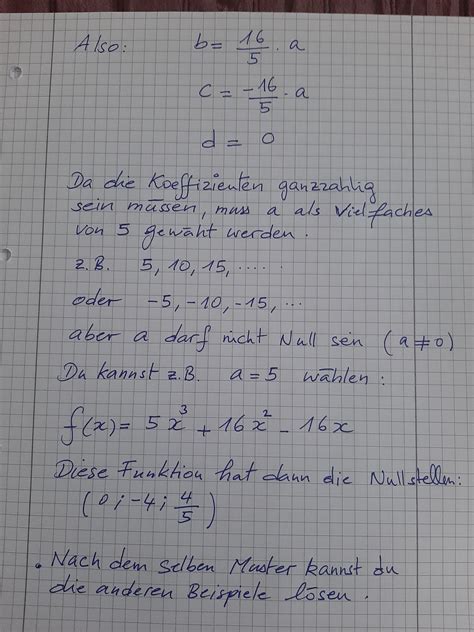 Also: b = 16/5 · a
c = -16/5 · a
d = 0
Da die Koeffizienten ganzzahlig
sein müssen, muss a als Vielfaches
von 5 gewäht werden.
z.B. 5, 10, 15, .....
oder -5, -10, -15, ...
aber a darf nicht Null sein (a ≠ 0)
Du kannst z.B. a = 5 wählen:
f(x) = 5x³ + 16x² - 16x
Diese Funktion hat dann die Nullstellen:
(0 ; -4 ; 4/5)
. Nach dem selben Muster kannst du
die anderen Beispiele lösen.